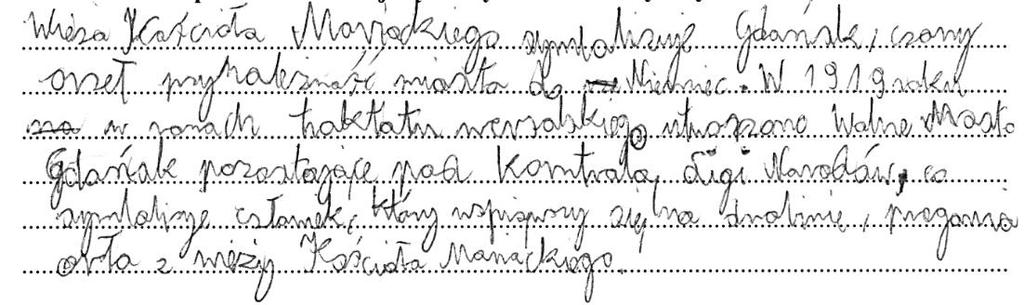 Wieża Kościoła Mariackiego symbolizuje Gdańsk, czarny
orzeł przynależność miasta do Niemiec. W 1919 roku
w ramach traktatu wersalskiego utworzono Wolne Miasto
Gdańsk pozostające pod kontrolą Ligi Narodów, co
symbolizuje człowiek, który wspiąwszy się na drabinie, przegania
orła z wieży Kościoła Mariackiego.